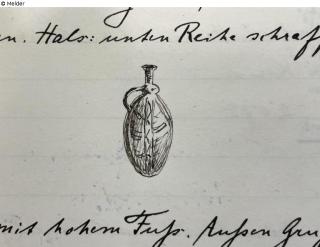 © Melder
en. Hals: unten Reihe schraff
mit hohem Fuss. Aussen Gru